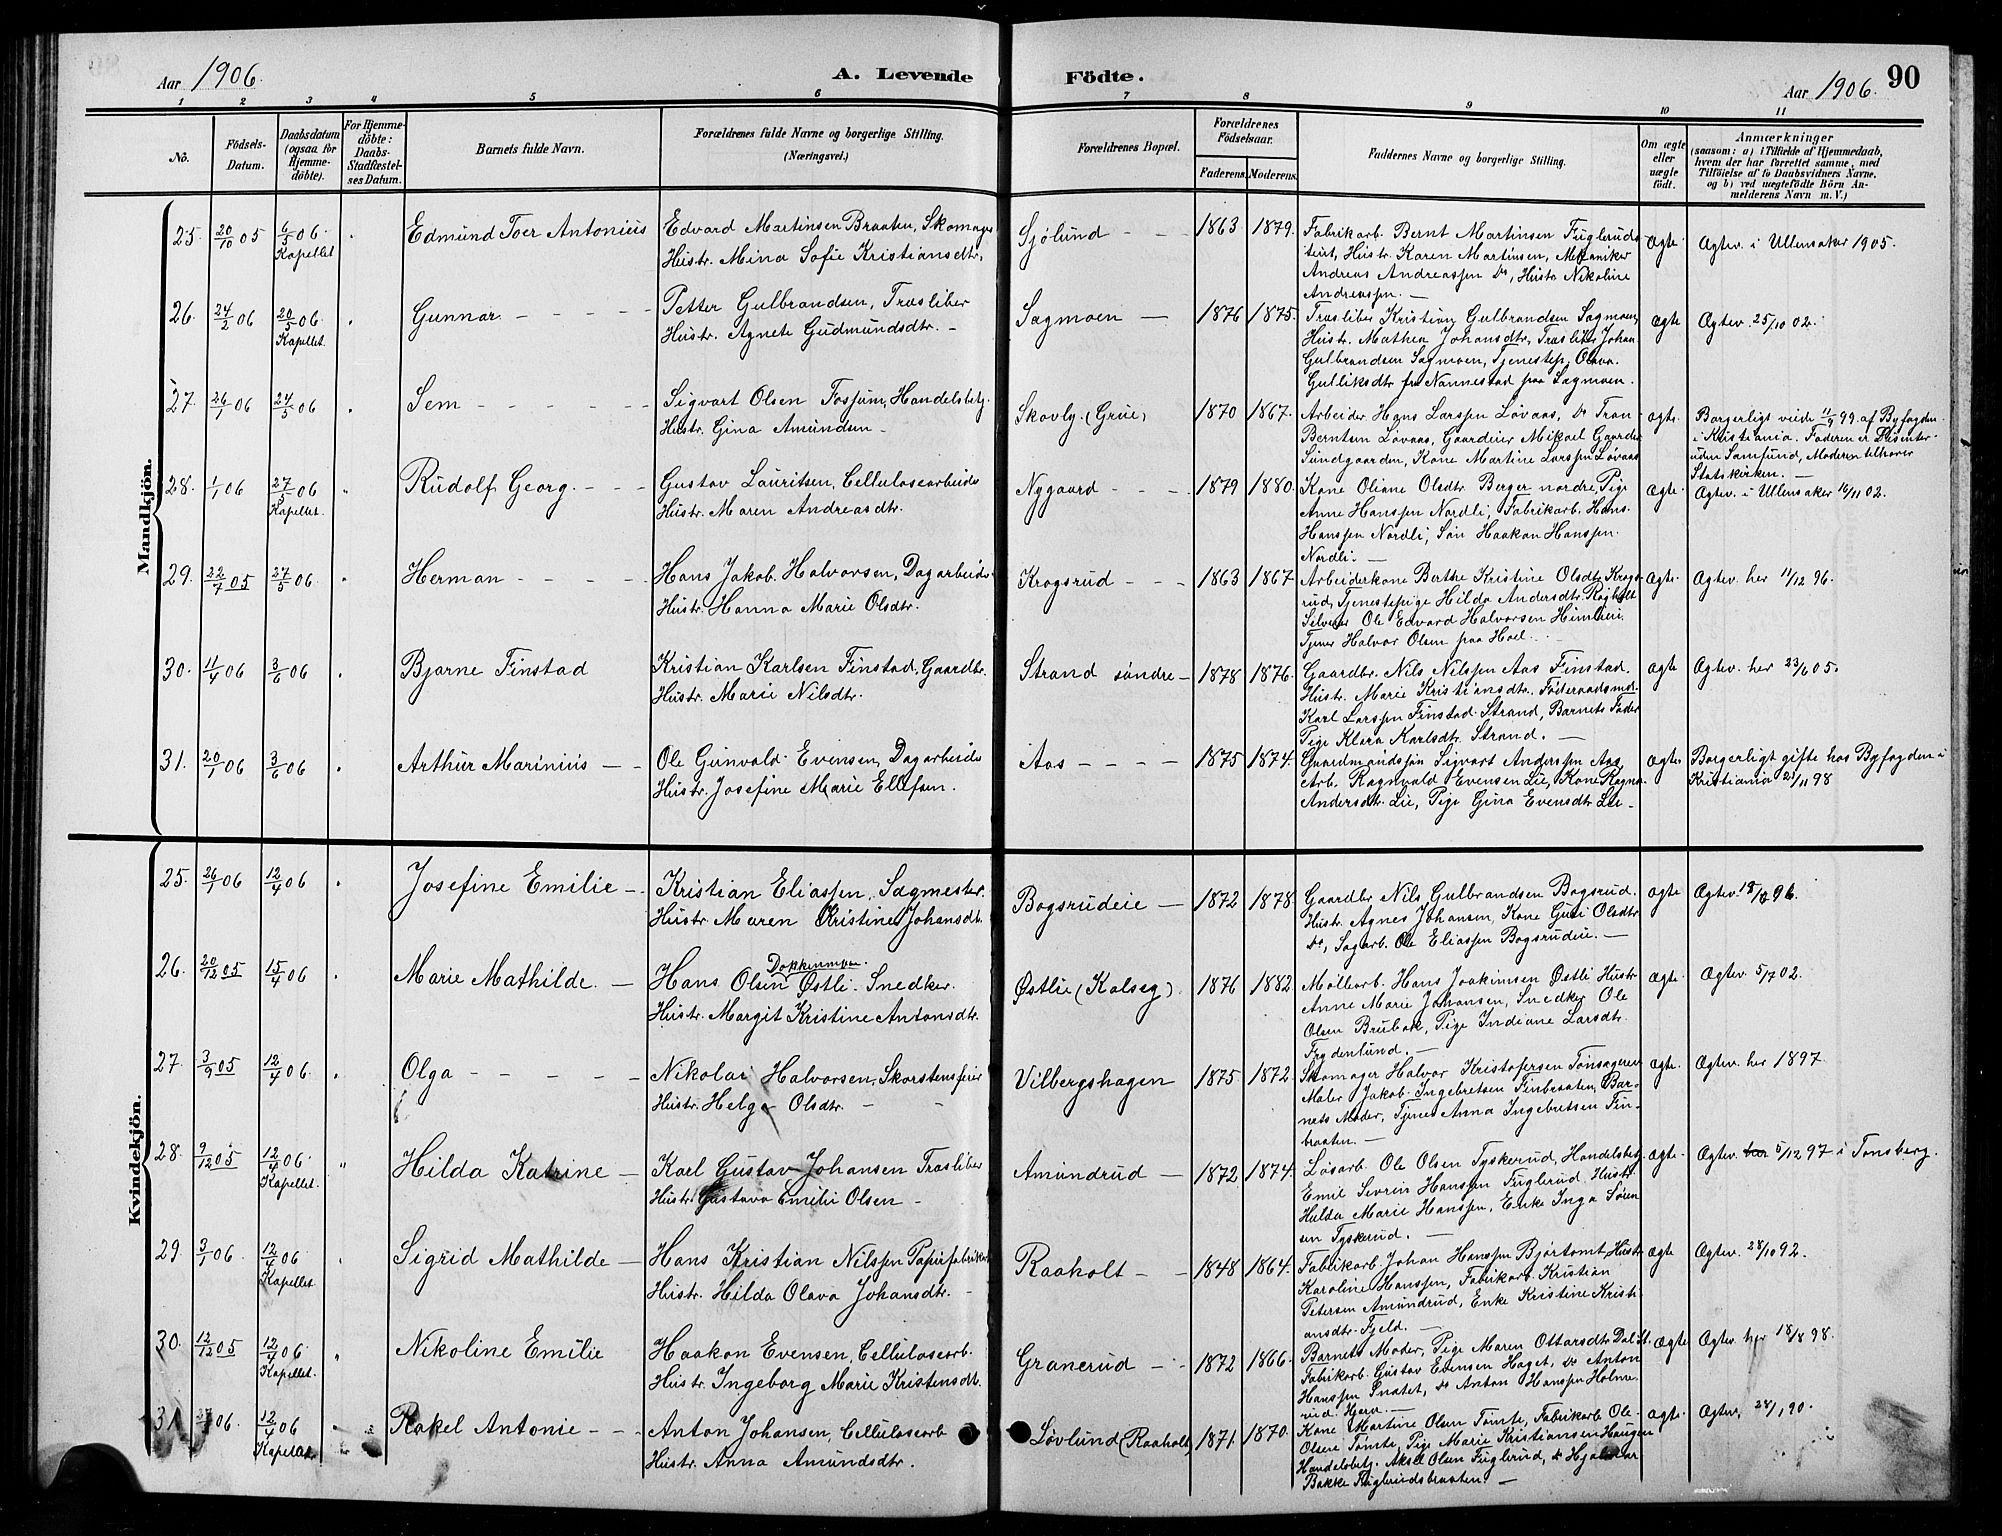 Aar 1906.
A. Levende
Födte.
Aar 1906.
90
1 2 3 4 5 6 7 8 9 10 11
No.
Födsels-Datum.
Daabsdatum (ogsaa for Hjemmedöbte).
For Hjemmedöbte: Daabs-Stadfæstelses Datum.
Barnets fulde Navn.
Forældrenes fulde Navne og borgerlige Stilling.
(Næringsvei.)
Forældrenes Bopæl.
Forældrenes Födselsaar.
Faderens. Moderens.
Faddernes Navne og borgerlige Stilling.
Om ægte eller uægte födt.
Anmærkninger
(saasom: a) i Tilfælde af Hjemmedaab, hvem der har forrettet samme, med Tilföielse af to Daabsvidners Navne, og b) ved uægtefödte Börn Anmelderens Navn m. V.)
Mandkjön.
25. 20/10 05 6/5 06. Kapellet
Edmund Toer Antonius
Edvard Martinsen Braaten, Skomager
Hustr. Mina Sofie Kristiansdtr.
Sjølund
1863 1879.
Fabrikarb. Bernt Martinsen Fuglerud
Hustr. Karen Martinsen, Mekaniker
Andreas Andreassen Do, Hustr. Nikoline
Andreassen.
Ægte.
Ægtev. i Ullensaker 1905.
26. 24/2 06 20/5 06. Kapellet.
Gunnar
Petter Gulbrandsen, Træsliber
Hustr. Agnete Gudmundsdtr.
Sagmoen
1876 1875.
Træsliber Kristian Gulbrandsen Sagmoen,
Hustr. Mathea Johansdtr, Træsliber Johan
Gulbrandsen Sagmoen, Tjenestep. Olava
Gulliksdtr fra Nannestad paa Sagmoen.
Ægte
Ægtev. 25/10 02.
27. 26/1 06 24/5 06
Sem
Sigvart Olsen Fosjum, Handelsbetj.
Hustr. Gina Amundsen
Skovly. (Grue)
1870 1867.
Arbeider Hans Larssen Løvaas, Do Tron
Berntsen Løvaas, Gaardeier Mikael Gaarder
Sundgaarden, Kone Martine Larssen Løvaas
Ægte.
Borgerligt viede 11/9 99 af Byfogden
i Kristiania. Faderen er Disenter
uden Samfund, Moderen tilhører
Statskirken.
28. 1/1 06 27/5 06 Kapellet.
Rudolf Georg.
Gustav Lauritsen, Cellulosearbeider
Hustr. Maren Andreasdtr.
Nygaard
1879 1880.
Kone Oliane Olsdtr. Berger nordre, Pige
Anne Hanssen Nordli, Fabrikarb. Hans
Hanssen Nordli, Søn Haakon Hanssen
Nordli.
Ægte.
Ægtev. i Ullensaker 16/11 02.
29. 22/7 05 27/5 06
Herman
Hans Jakob Halvorsen, Dagarbeider
Hustr. Hanna Marie Olsdtr.
Krogsrud
1863 1867
Arbeiderkone Berthe Kristine Olsdtr. Krogsrud,
Tjenestepige Hilda Andersdtr. Raaholt
Ole Edvard Halvorsen
Tjener Halvor Olsen paa Hoel.
Ægte.
Ægtev. her 11/12 96.
30. 11/4 06 3/6 06
Bjarne Finstad
Kristian Karlsen Finstad, Gaardbr.
Hustr. Marie Nilsdtr.
Strand søndre
1878 1876.
Gaardbr. Nils Nilssen Aas Finstad.
Hustr. Marie Kristiansdtr. Føderaadsmd.
Karl Larssen Finstad Strand, Barnets Fader
Pige Klara Karlsdtr. Strand.
Ægte
Ægtev. her 23/6 05.
31. 20/1 06 3/6 06
Arthur Marinius
Ole Gunvald Evensen, Dagarbeider
Hustr. Josefine Marie Ellefsen.
Aas
1875 1874.
Gaardmandssøn Sigvart Anderssen Aas,
Arb. Ragnvald Evensen Lie, Kone Ragna
Andersdtr. Lie, Pige Gina Evensdtr Lie
Ægte
Borgerligt gifte hos Byfogden i
Kristiania 21/11 98
Kvindekjön.
25. 26/1 06 12/4 06
Josefine Emilie
Kristian Eliassen, Sagmester.
Hustr. Maren Kristine Johansdt.
Bogsrudeie
1872 1878
Gaardbr Nils Gulbrandsen Bogsrud.
Hustr. Agnes Johansen, Kone Guri Olsdtr
Do, Sagarb. Ole Eliassen Bogsrudeie.
Ægte
Ægtev. 18/10 96.
26. 20/12 05 15/4 06
Marie Mathilde.
Dokkenmoen.
Hans Olsen Østli. Snedker.
Hustr. Margit Kristine Antonsdtr.
Østlie (Kalseg)
1876 1882
Møllearb. Hans Joakimsen Østli Hustr
Anne Marie Johansen, Snedker Ole
Olsen Brubak, Pige Indiane Larsdtr.
Frydenlund.
Ægte.
Ægtev. 5/7 02.
27. 3/9 05 12/4 06
Olga
Nikolai Halvorsen, Skorstensfeier
Hustr. Helga Olsdtr.
Vilbergshagen
1875. 1872.
Skomager Halvor Kristofersen Tønsageren
Maler Jakob Ingebretsen Finbraaten, Barnets
Moder, Tjener Anna Ingebretsen Finbraaten.
Ægte.
Ægtev. her 1897.
28. 9/12 05 12/4 06. Kapellet.
Hilda Katrine
Karl Gustav Johansen Træsliber
Hustr. Gustava Emilie Olsen
Amundrud
1872 1874.
Løsarb. Ole Olsen Tyskerud, Handelsbetj.
Emil Sevrin Hanssen Fuglerud, Hustr.
Hulda Marie Hanssen, Enke Inga Sørensen
Tyskerud.
Ægte.
Ægtev. her 5/12 97 i Tønsberg.
29. 3/1 06. 12/4 06 Kapellet.
Sigrid Mathilde
Hans Kristian Nilssen Papirfabrikarb.
Hustr. Hilda Olava Johansdtr.
Raaholt
1848 1864.
Fabrikarb. Johan Hanssen Bjørtomt, Hustr
Karoline Hanssen, Fabrikarb. Kristian
Petersen Amundrud, Enke Kristine Kristiansdtr.
Fjeld.
Ægte
Ægtev. 28/10 92.
30. 12/12 05 12/4 06. Kapellet.
Nikoline Emilie
Haakon Evensen, Cellulosearb.
Hustr. Ingeborg Marie Kristensdt.
Granerud
1872 1866.
Barnets Moder, Pige Maren Ottarsdtr Dal
Fabrikarb. Gustav Evensen Haget, Do Anton
Hanssen Snatet, Do Anton Hanssen Holmerud.
Ægte
Ægtev. her 18/8 98.
31 06. 12/4 06 Kapellet
Rakel Antonie
Anton Johansen, Cellulosearb
Hustr. Anna Amundsdtr.
Løvlund (Raaholt)
1871. 1870.
Kone Martine Olsen Tomte, Fabrikarb. Ole
Olsen Tomte, Pige Marie Kristiansen Haugen
Handelsbetj. Aksel Olsen Fuglerud, Do Hjalmar
Bakke Fuglerudsbraaten.
Ægte.
Ægtev. 28/1 90.